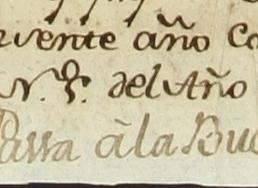 rvente año Co
N. S. del Año
Passa à la Bue